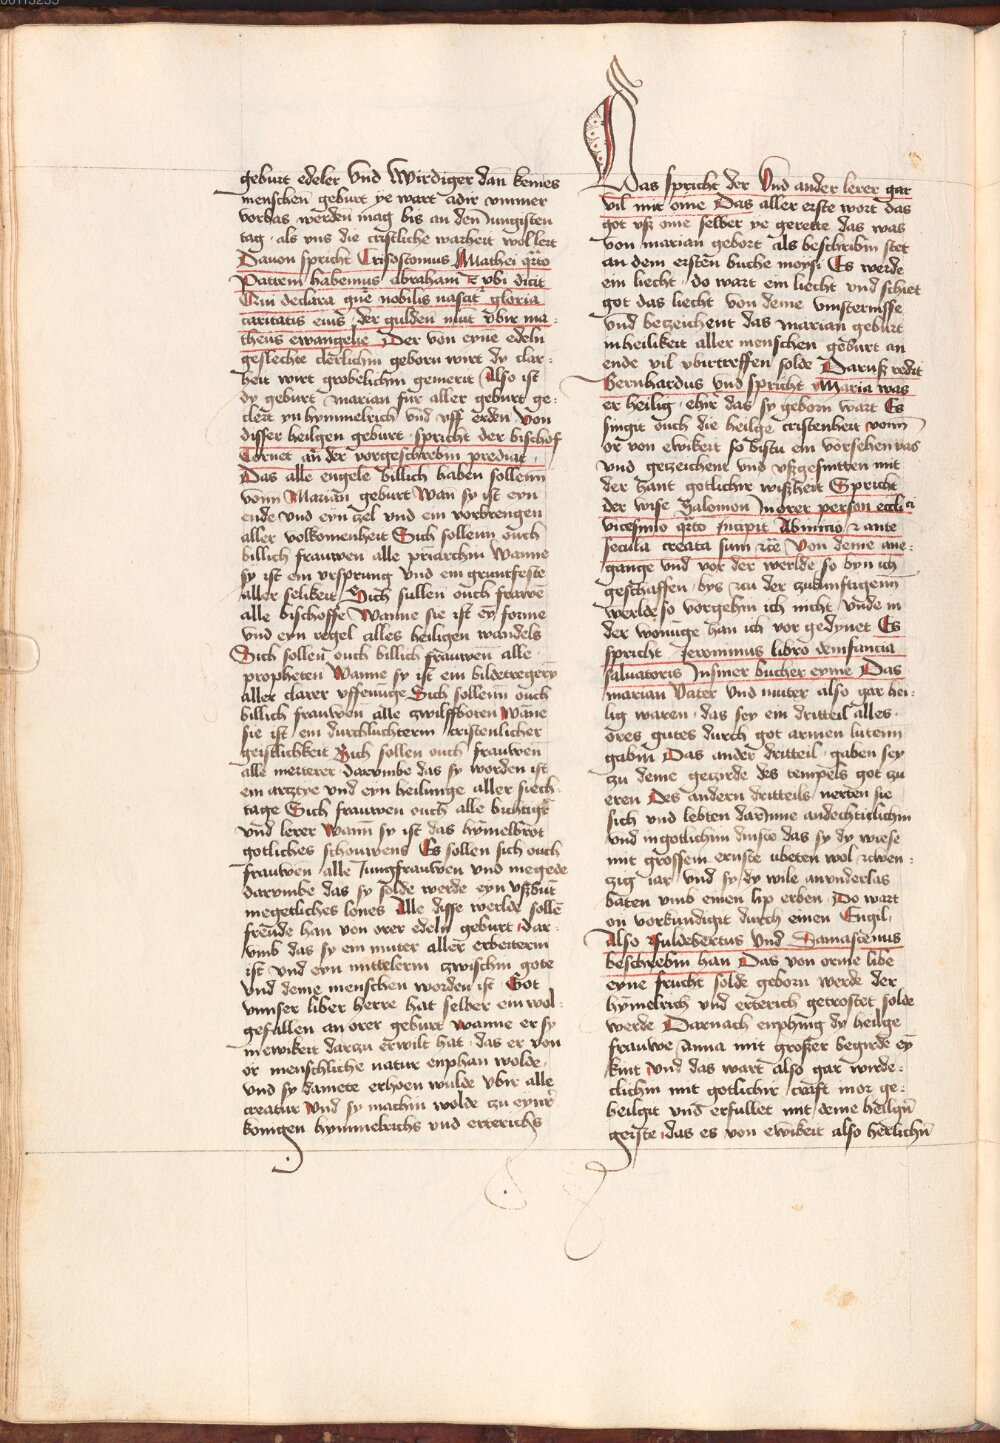 geburt edeler vnd Wirdiger dan keines
menschen geburt ye wart adir vmmer
vorbas werden mag bis an den Jungisten
tag · als vns die cristliche warheit wollert
Dauon spricht Crisostomus Mathei q̄rto
Pattem habemus abraham vbi dicit
Qui declara quē nobilis nascit gloria
caritatis eius · der gulden mut vbir ma
theus ewangelie Der von eyne edeln
geslechte clerlichin geborn wirt dy clar-
heit wirt grobelichin gemerit Also ist
dy geburt marian fur aller geburt ge-
clert yn hymmelrich vnd vff erden Von
disser heilgen geburt · spricht der bischof
Cornet an der vorgeschrebin prediat ·
Das alle engele billich haben sollenn
vonn Marian geburt Wan sy ist eyn
ende vnd eyn zel vnd ein vorbrengen
aller volkomenheit Sich sollenn ouch
billich frauwen alle priarchin Wanne
sy ist ein vrsprung vnd ein gruntfeste
aller selikeit Sich sullen ouch frawē
alle bischoffe Wanne sie ist eȳ forme
vnd eyn regel alles heiligen wandels
Sich sollen ouch billich frauwen alle ·
propheten Wanne sy ist ein bildetregerȳ
aller clarer vffenūge Sich sollenn ouch
billich frauwen alle zwilffboten Wāne
sie ist ein durchluchterin cristenlicher
geistlichkeit Sich sollen ouch frauwen
alle merterer darumbe das sy worden ist
ein arztye vnd eyn heilunge aller siech-
tage Sich frauwen ouch alle bichtigē
vnd lerer Wann sy ist das hȳmelbrot
gotliches schouwens Es sollen sich ouch
frauwen alle Jungfrauwen vnd megede
darumbe das sy solde werde eyn vßbūt
megetliches lones Alle disse werlde sollē
freude han von orer edeln geburt dar-
vmb das sy ein muter aller erbeiterin
ist vnd eyn mittelerin zwischin gote
vnd deme menschen worden ist Got
vnnser liber herre hat selber ein wol-
gefallen an orer geburt wanne er sy
in ewikeit darzu erwilt hat · das er von
or menschliche natur enphan wolde ·
vnd sy damete erhoen wulde vbir alle
creatur vnd sy machin wolde zu eyner
konigen hymmelrichs vnd erterichs
Was spricht der Vnd ander lerer gar
vil mit ome Das aller erste wort das
got vß ome selber ye gerette das was
von marian gebort als beschribin stet
an dem ersten buche moysi Es werde
ein liecht · do wart ein liecht vnd schiet
got das liecht von deme vinsternisse
vnd bezeichent das marian geburt
in heilikeit aller menschen geburt an
ende vil vbirtreffen solde Daruß redit
Bernhardus vnd spricht Maria was
er heilig · ehir das sy geborn wart Es
singit ouch die heilge cristenheit vonn
or von ewikeit so bistu ein vorsehen vas
vnd gezeichent vnd vßgesnitten mit
der hant gotlichir wißheit Spricht
der wise Salomon In orer person eccli
vicesimo q̄rto incipit Ab inicio z ante
secula creata sum zcē Von deme ane-
gange vnd vor der werlde so byn ich
geschaffen · bys zu der zukunftigenn
werlde so vorgehin ich nicht vnde in
der wonūge han ich vor gedynet Es
spricht Jeronimus libro de infancia
saluatoris In siner bucher eyme Das
marian vater vnd muter also gar hei-
lig waren · das sey ein dritteil alles ·
ores gutes durch got armen lutenn
gabin Das ander dritteil · gaben sey
zu deme gezirde des tempels got zu
eren Des andern dritteils nerten sie
sich vnd lebten darJnne andechtiglichin
vnd in gotlichin dinste das sy dy wiese
mit grossem ernste vbeten wol zwen-
zig iar vnd sy dy wile an vnderlas
baten vmb einen lip erben Do wart
on vorkundigit durch einen Engil
Also Fuldebertus Vnd Damascenus
beschrebin han Das von orme libe
eyne frucht solde geborn werde der
hȳmelrich vnd erterich getrostet solde
werde Darnach enphing dy heilge
frauwe Anna mit großer begirde eȳ
kint vnd das wart also gar wirde-
clichin mit gotlichir craft in or ge-
heilgit vnd erfullet mit deme heilgn̄
geiste das es von ewikeit also herlichn̄